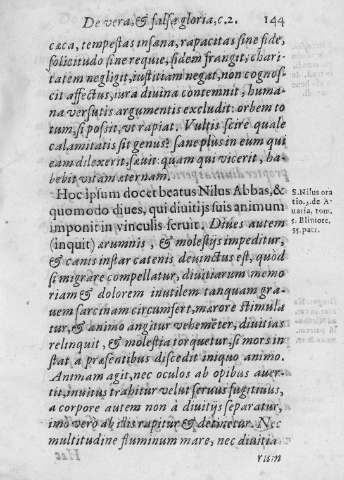 De vera, & falsa gloria, c. 2. 144
cæca, tempestas insana, rapacitas sine fide,
solicitudo sine requie, fidem frangit, chari
tatem negligit, iustitiam negat, non cognos
cit affectus, iura diuina contemnit, huma
na versutis argumentis excludit: orbem to
tum, si possit, vt rapiat. Vultis scire quale
calamitatis sit genus? sane plus in eum qui
eam dilexerit, sæuit: quam qui vicerit, ha-
bebit vitam æternam.
Hoc ipsum docet beatus Nilus Abbas, &
quomodo diues, qui diuitijs suis animum
imponit in vinculis seruit. Diues autem
(inquit) ærumnis, & molestijs impeditur,
& canis instar catenis deuinctus est, quòd
si migrare compellatur, diuitiarum memo
riam & dolorem inutilem tanquam gra-
uem sarcinam circumfert, marore stimula
tur, & animo angitur vehemēter, diuitias
relinquit, & molestia torquetur, si mors in
stat a præsentibus discedit iniquo animo.
Animam agit, nec oculos ab opibus auer-
tit, inuitus trahitur velut seruus fugitiuus,
a corpore autem non a diuitijs separatur,
imo vero ab illis rapitur & detinetur. Nec
multitudine fluminum mare, nec diuitia
rum
S. Nilus ora
tio, de A-
uaritia, tom.
5. Bliniote.
ss. patr.